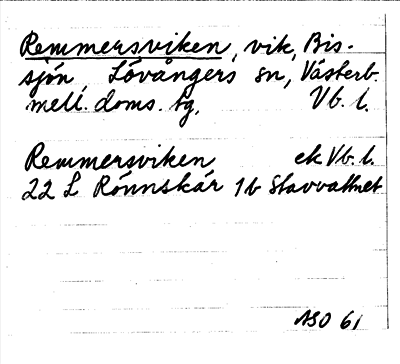 Remmersviken, vik, Bis-
sjön, Lövångers sn, Västerb.
mell. doms. tg, Vb. l.
Remmersviken ek Vb. l.
22 L Rönnskär 1b Stavvattnet
ASO 61